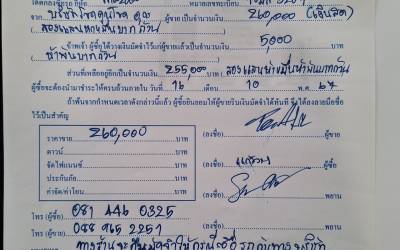 บริษัทโชคคูณโชค ผู้ขาย เป็นจำนวนเงิน 260,000 (เงินสด)
สองแสนหกหมื่นบาทถ้วน
ข้าพเจ้า ผู้ซื้อได้วางเงินมัดจำไว้แก่ผู้ขายแล้วเป็นจำนวนเงิน 5,000
ห้าพันบาทถ้วน บาท
ส่วนที่เหลืออยู่อีกเป็นจำนวนเงิน 255,000 สองแสนห้าหมื่นห้าพันบาทถ้วน
ผู้ซื้อจะต้องนำมาชำระให้ครบถ้วนภายใน วันที่ 16 เดือน 10 พ.ศ. 67
ถ้าพ้นจากกำหนดเวลาดังกล่าวนี้แล้ว ผู้ซื้อยินยอมให้ผู้ขายริบเงินมัดจำได้ทันที จึงได้ลงลายมือชื่อ
ไว้เป็นสำคัญ
ราคาขาย 260,000 บาท (ลงชื่อ) ผู้ขาย
ดาวน์ บาท
จัดไฟแนนซ์ บาท (ลงชื่อ) ผู้ซื้อ
ประกันภัย บาท
ค่าจัด/ค่าโอน บาท (ลงชื่อ) พยาน
โทร (ผู้ซื้อ) 081 446 0325 (ลงชื่อ) พยาน
โทร (ผู้ขาย) 088 965 2251